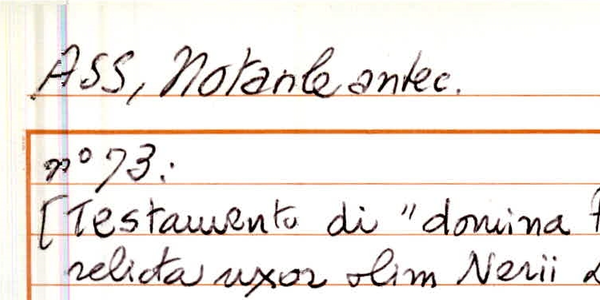 ASS, Notarile antec.
n° 73:
[Testamento di "domina
relicta uxor olim Nerii